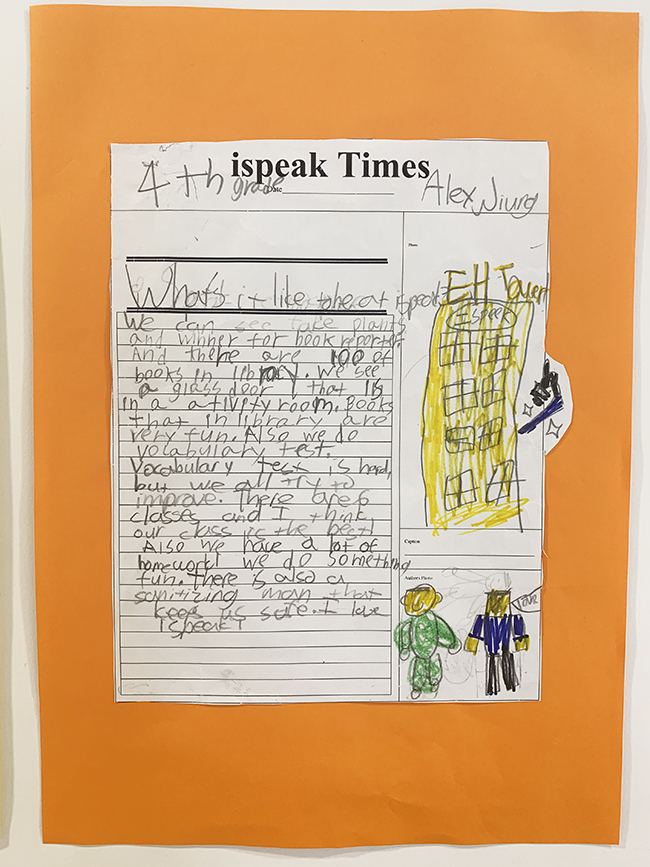 ispeak Times
4th grade
Date
Alex
Photo
What's it like to be at ispeak?
EH Tower
Ispeek
We can see take plants
and winner for book reporter.
And there are 100 of
books in library. We see
a glass door that is
in a activity room. Books
that in library are
very fun. Also we do
vocabulary test.
Vocabulary test is hard,
but we all try to
improve. There are 6
classes and I think
our class is the best!
Also we have a lot of
homework! we do something
fun. There is also a
sanitizing man that
keeps us safe. I love
ispeak!
Caption
Author's Photo